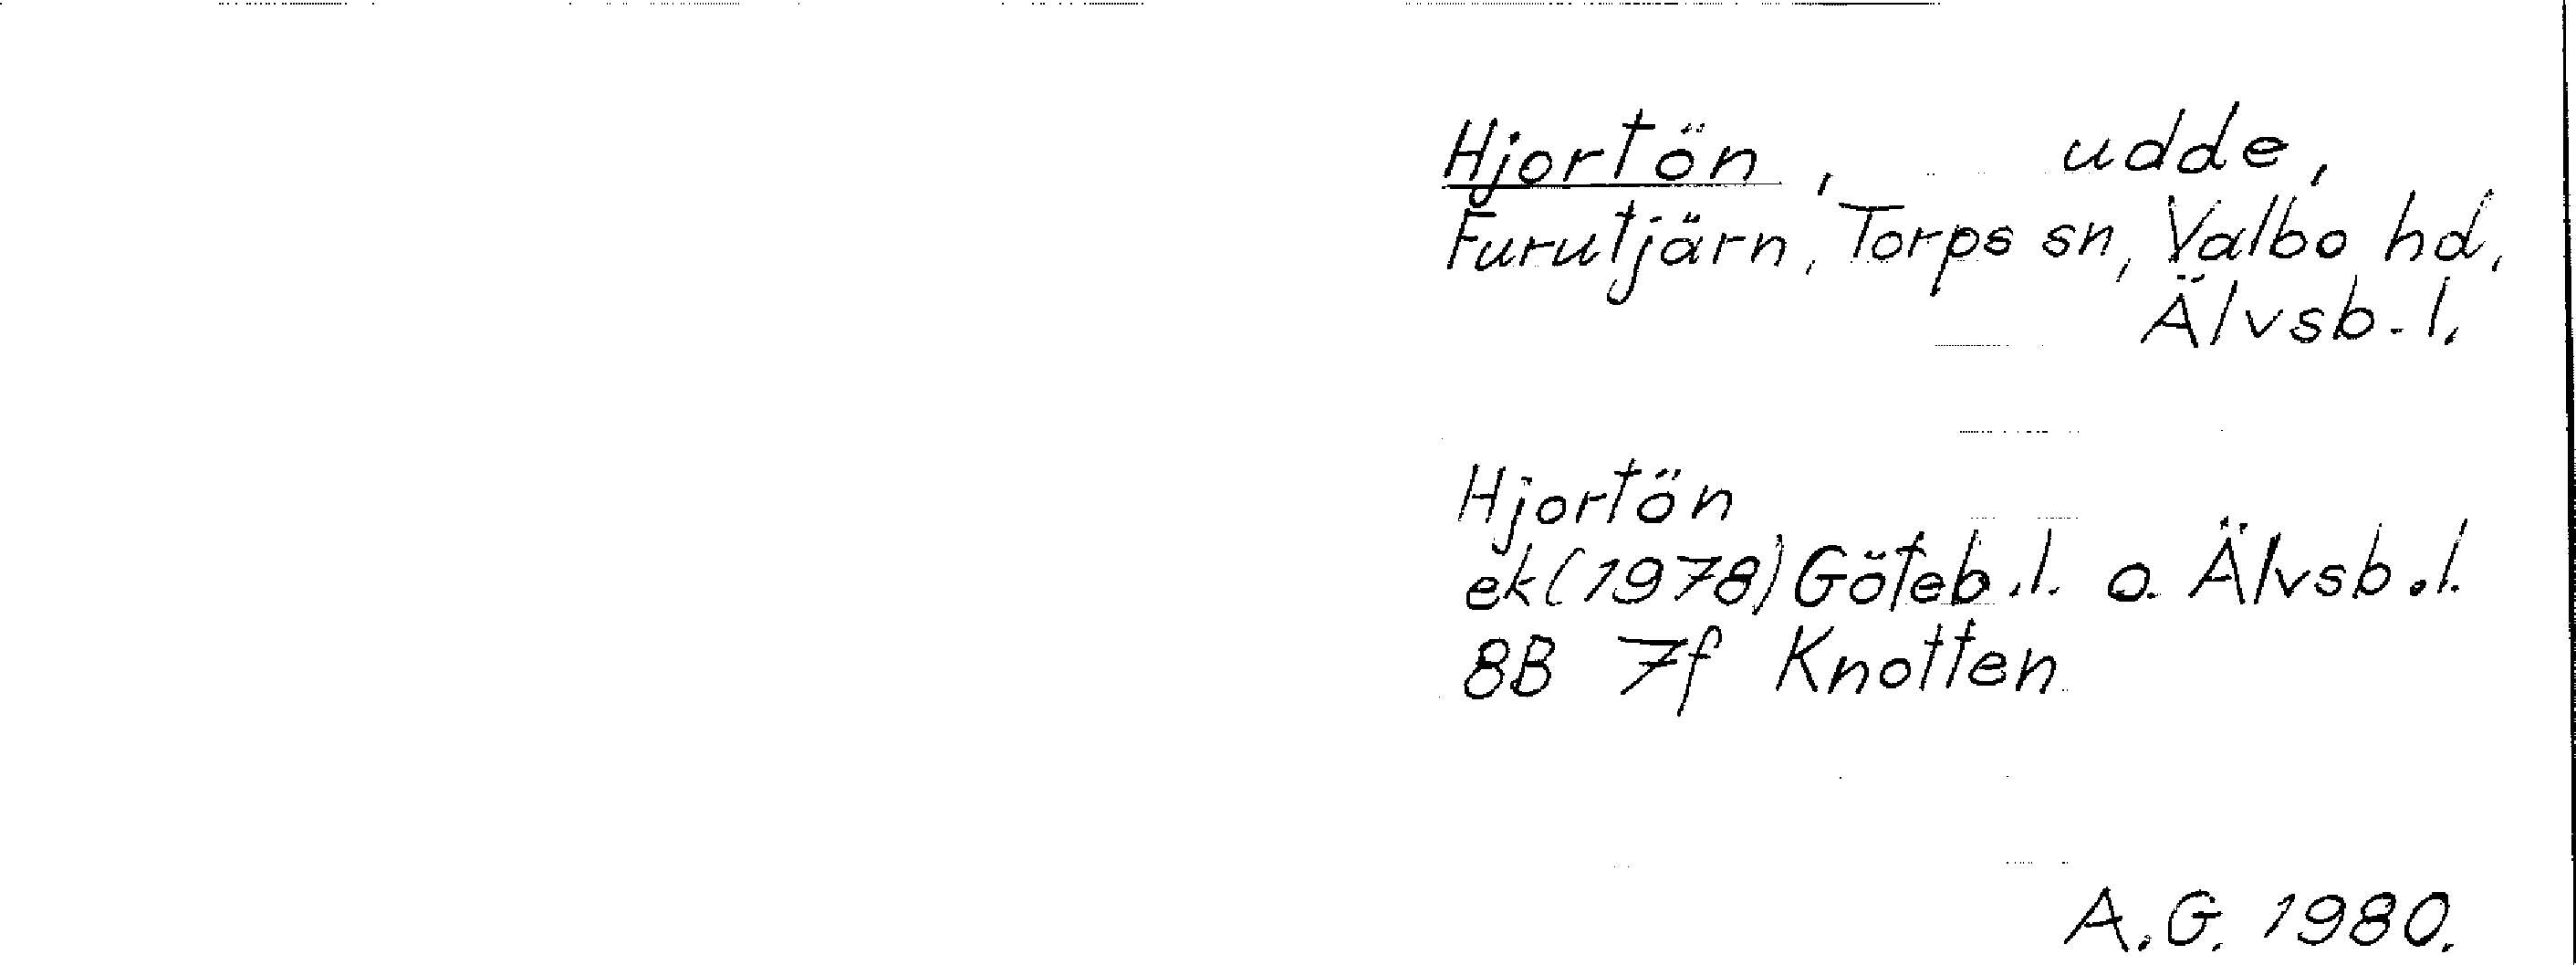 Hjortön, udde,
Furutjärn, Torps sn, Valbo hd,
Älvsb. l.
Hjortön
ek (1978) Göteb. l. o. Älvsb. l.
8B 7f Knotten
A.G. 1980.